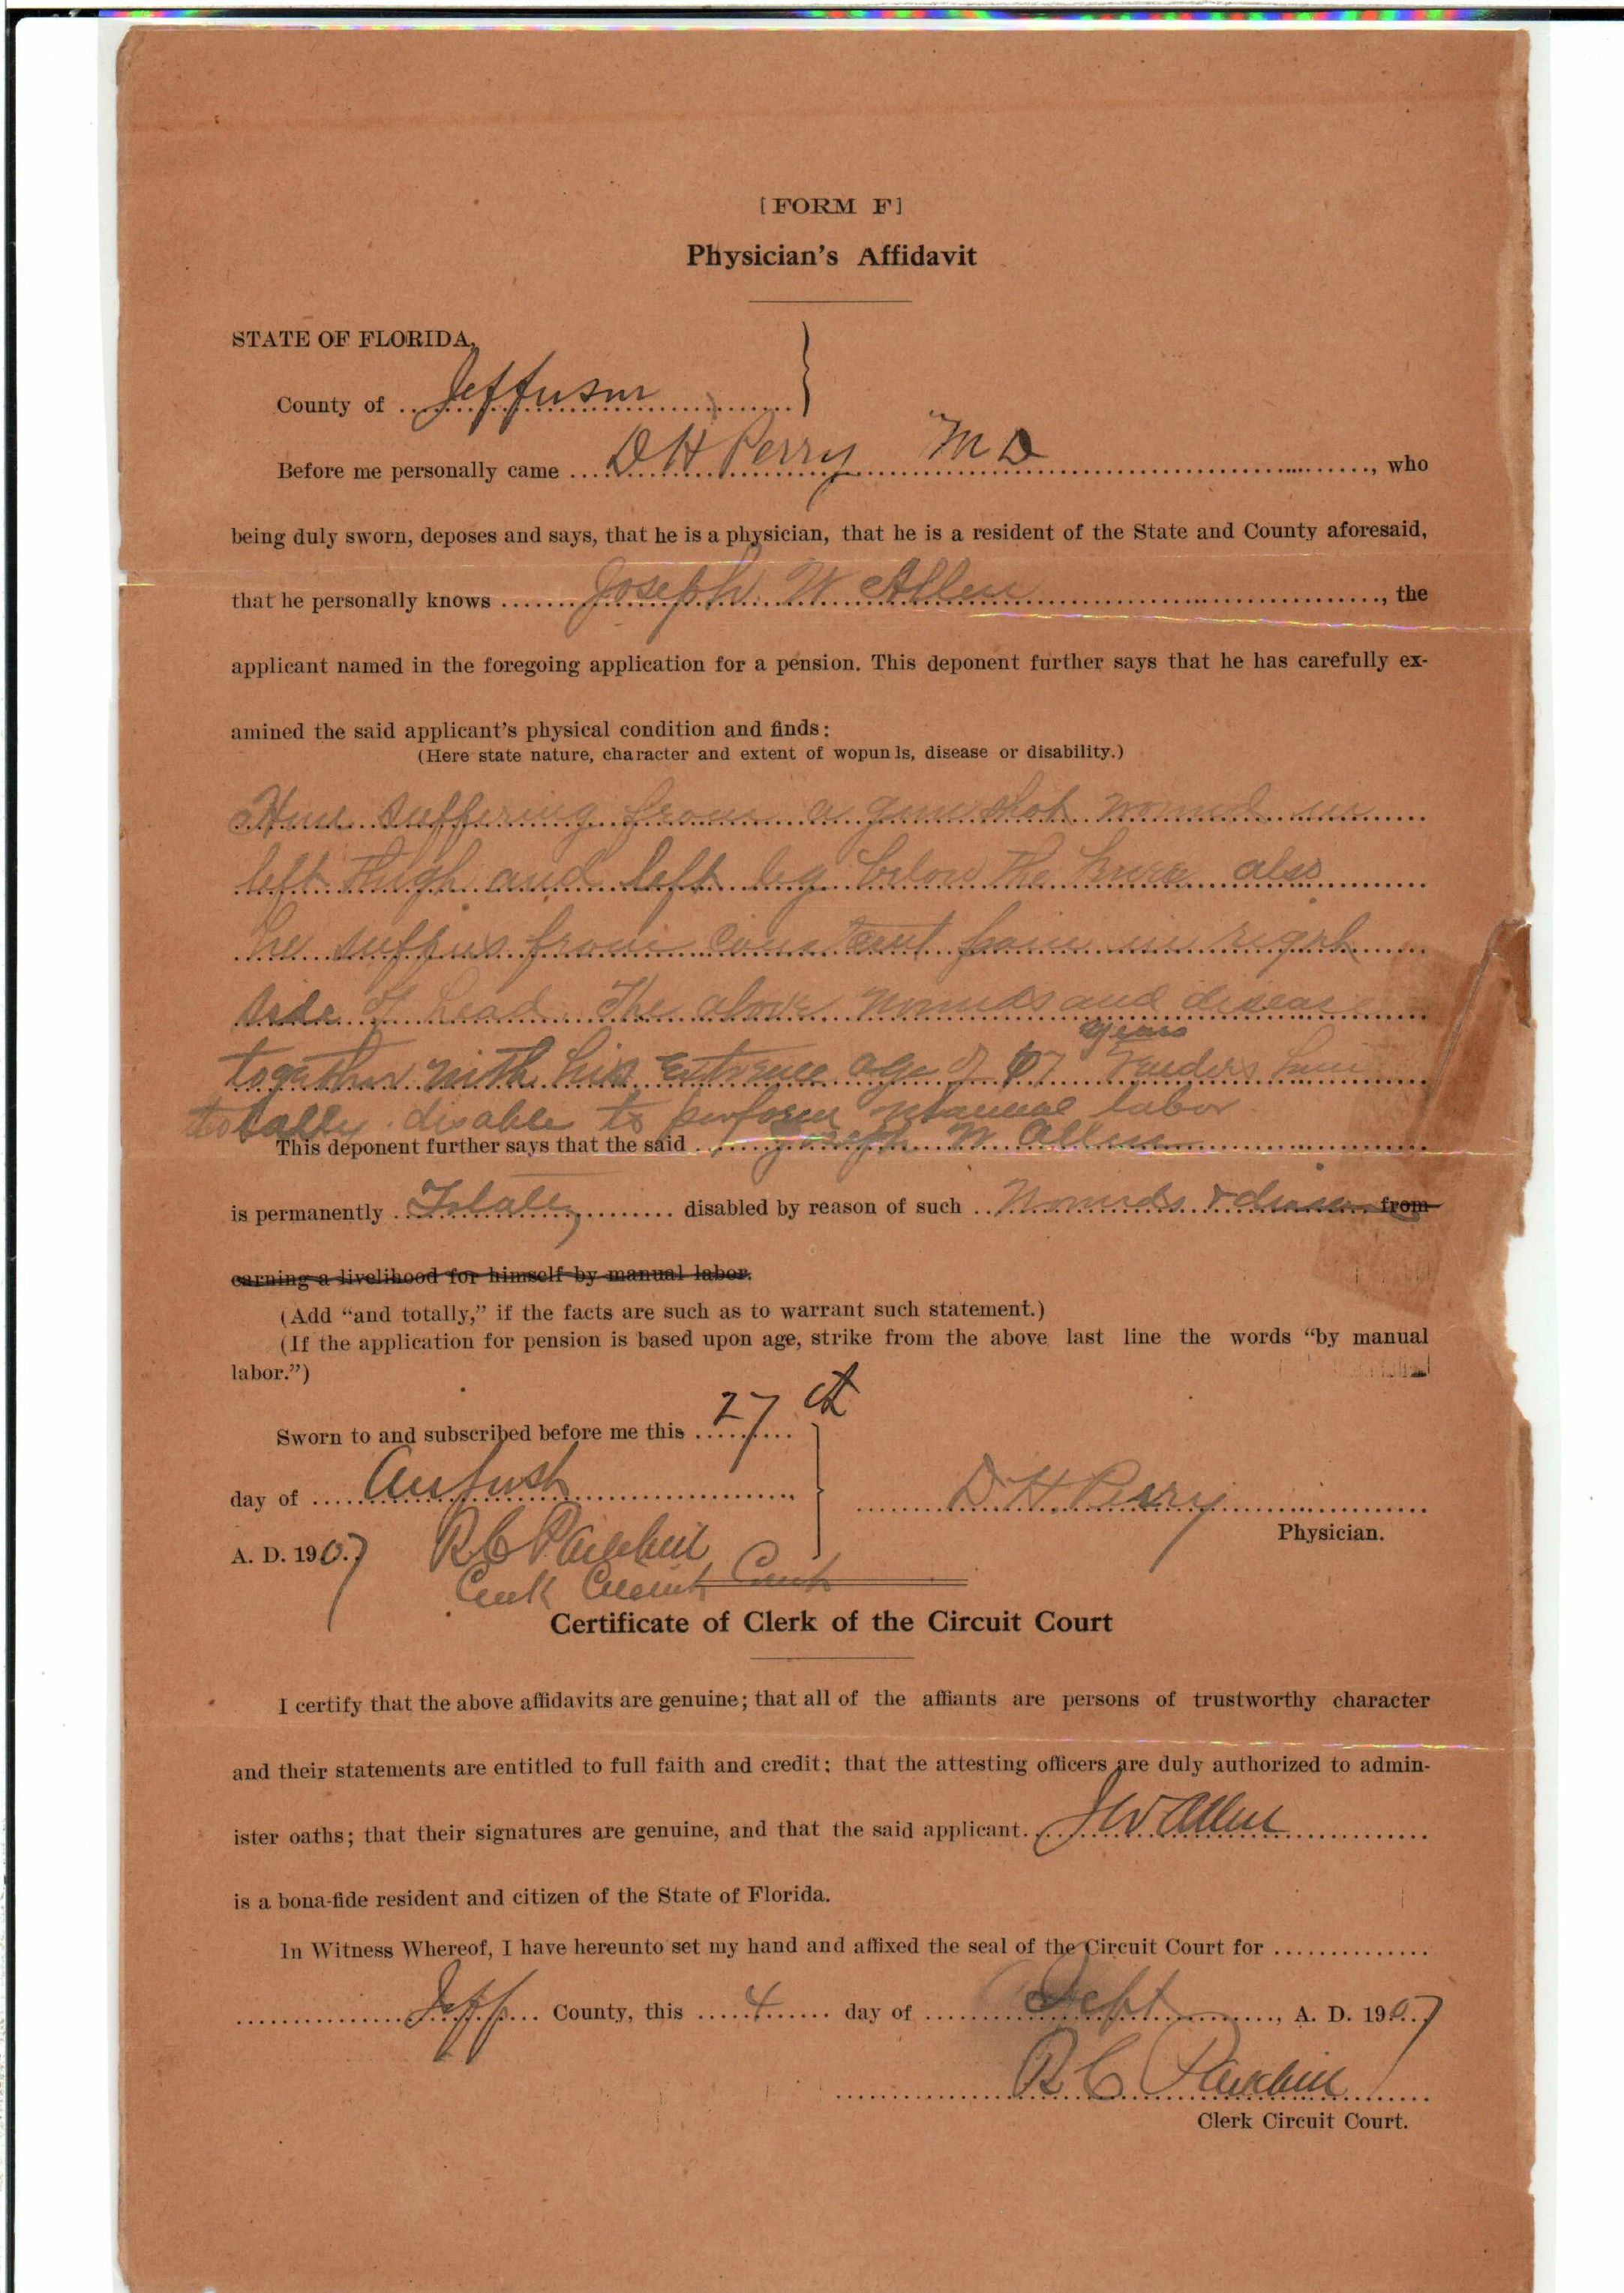 [FORM F]
Physician's Affidavit
STATE OF FLORIDA,
County of Jefferson
Before me personally came D H Perry M D, who
being duly sworn, deposes and says, that he is a physician, that he is a resident of the State and County aforesaid,
that he personally knows Joseph W Allen, the
applicant named in the foregoing application for a pension. This deponent further says that he has carefully ex-
amined the said applicant's physical condition and finds:
(Here state nature, character and extent of wopun ls, disease or disability.)
Him suffering from a gun shot wound in
left thigh and left leg below the knee also
he suffers from constant pain in right
side of head. The above wounds and disease
years
together with his extreme age of 67 renders him
totally disable to perform manual labor
This deponent further says that the said Joseph W. Allen
is permanently Totally disabled by reason of such Wounds & disease from
earning a livelihood for himself by manual labor.
(Add “and totally,” if the facts are such as to warrant such statement.)
(If the application for pension is based upon age, strike from the above last line the words “by manual
labor.”)
Sworn to and subscribed before me this 27th
day of August
D H Perry
Physician.
A. D. 1907 R C
Clerk Circuit Court
Certificate of Clerk of the Circuit Court
I certify that the above affidavits are genuine; that all of the affiants are persons of trustworthy character
and their statements are entitled to full faith and credit; that the attesting officers are duly authorized to admin-
ister oaths; that their signatures are genuine, and that the said applicant. J W Allen
is a bona-fide resident and citizen of the State of Florida.
In Witness Whereof, I have hereunto set my hand and affixed the seal of the Circuit Court for
Jeff County, this 4 day of Sept, A. D. 1907
R C
Clerk Circuit Court.